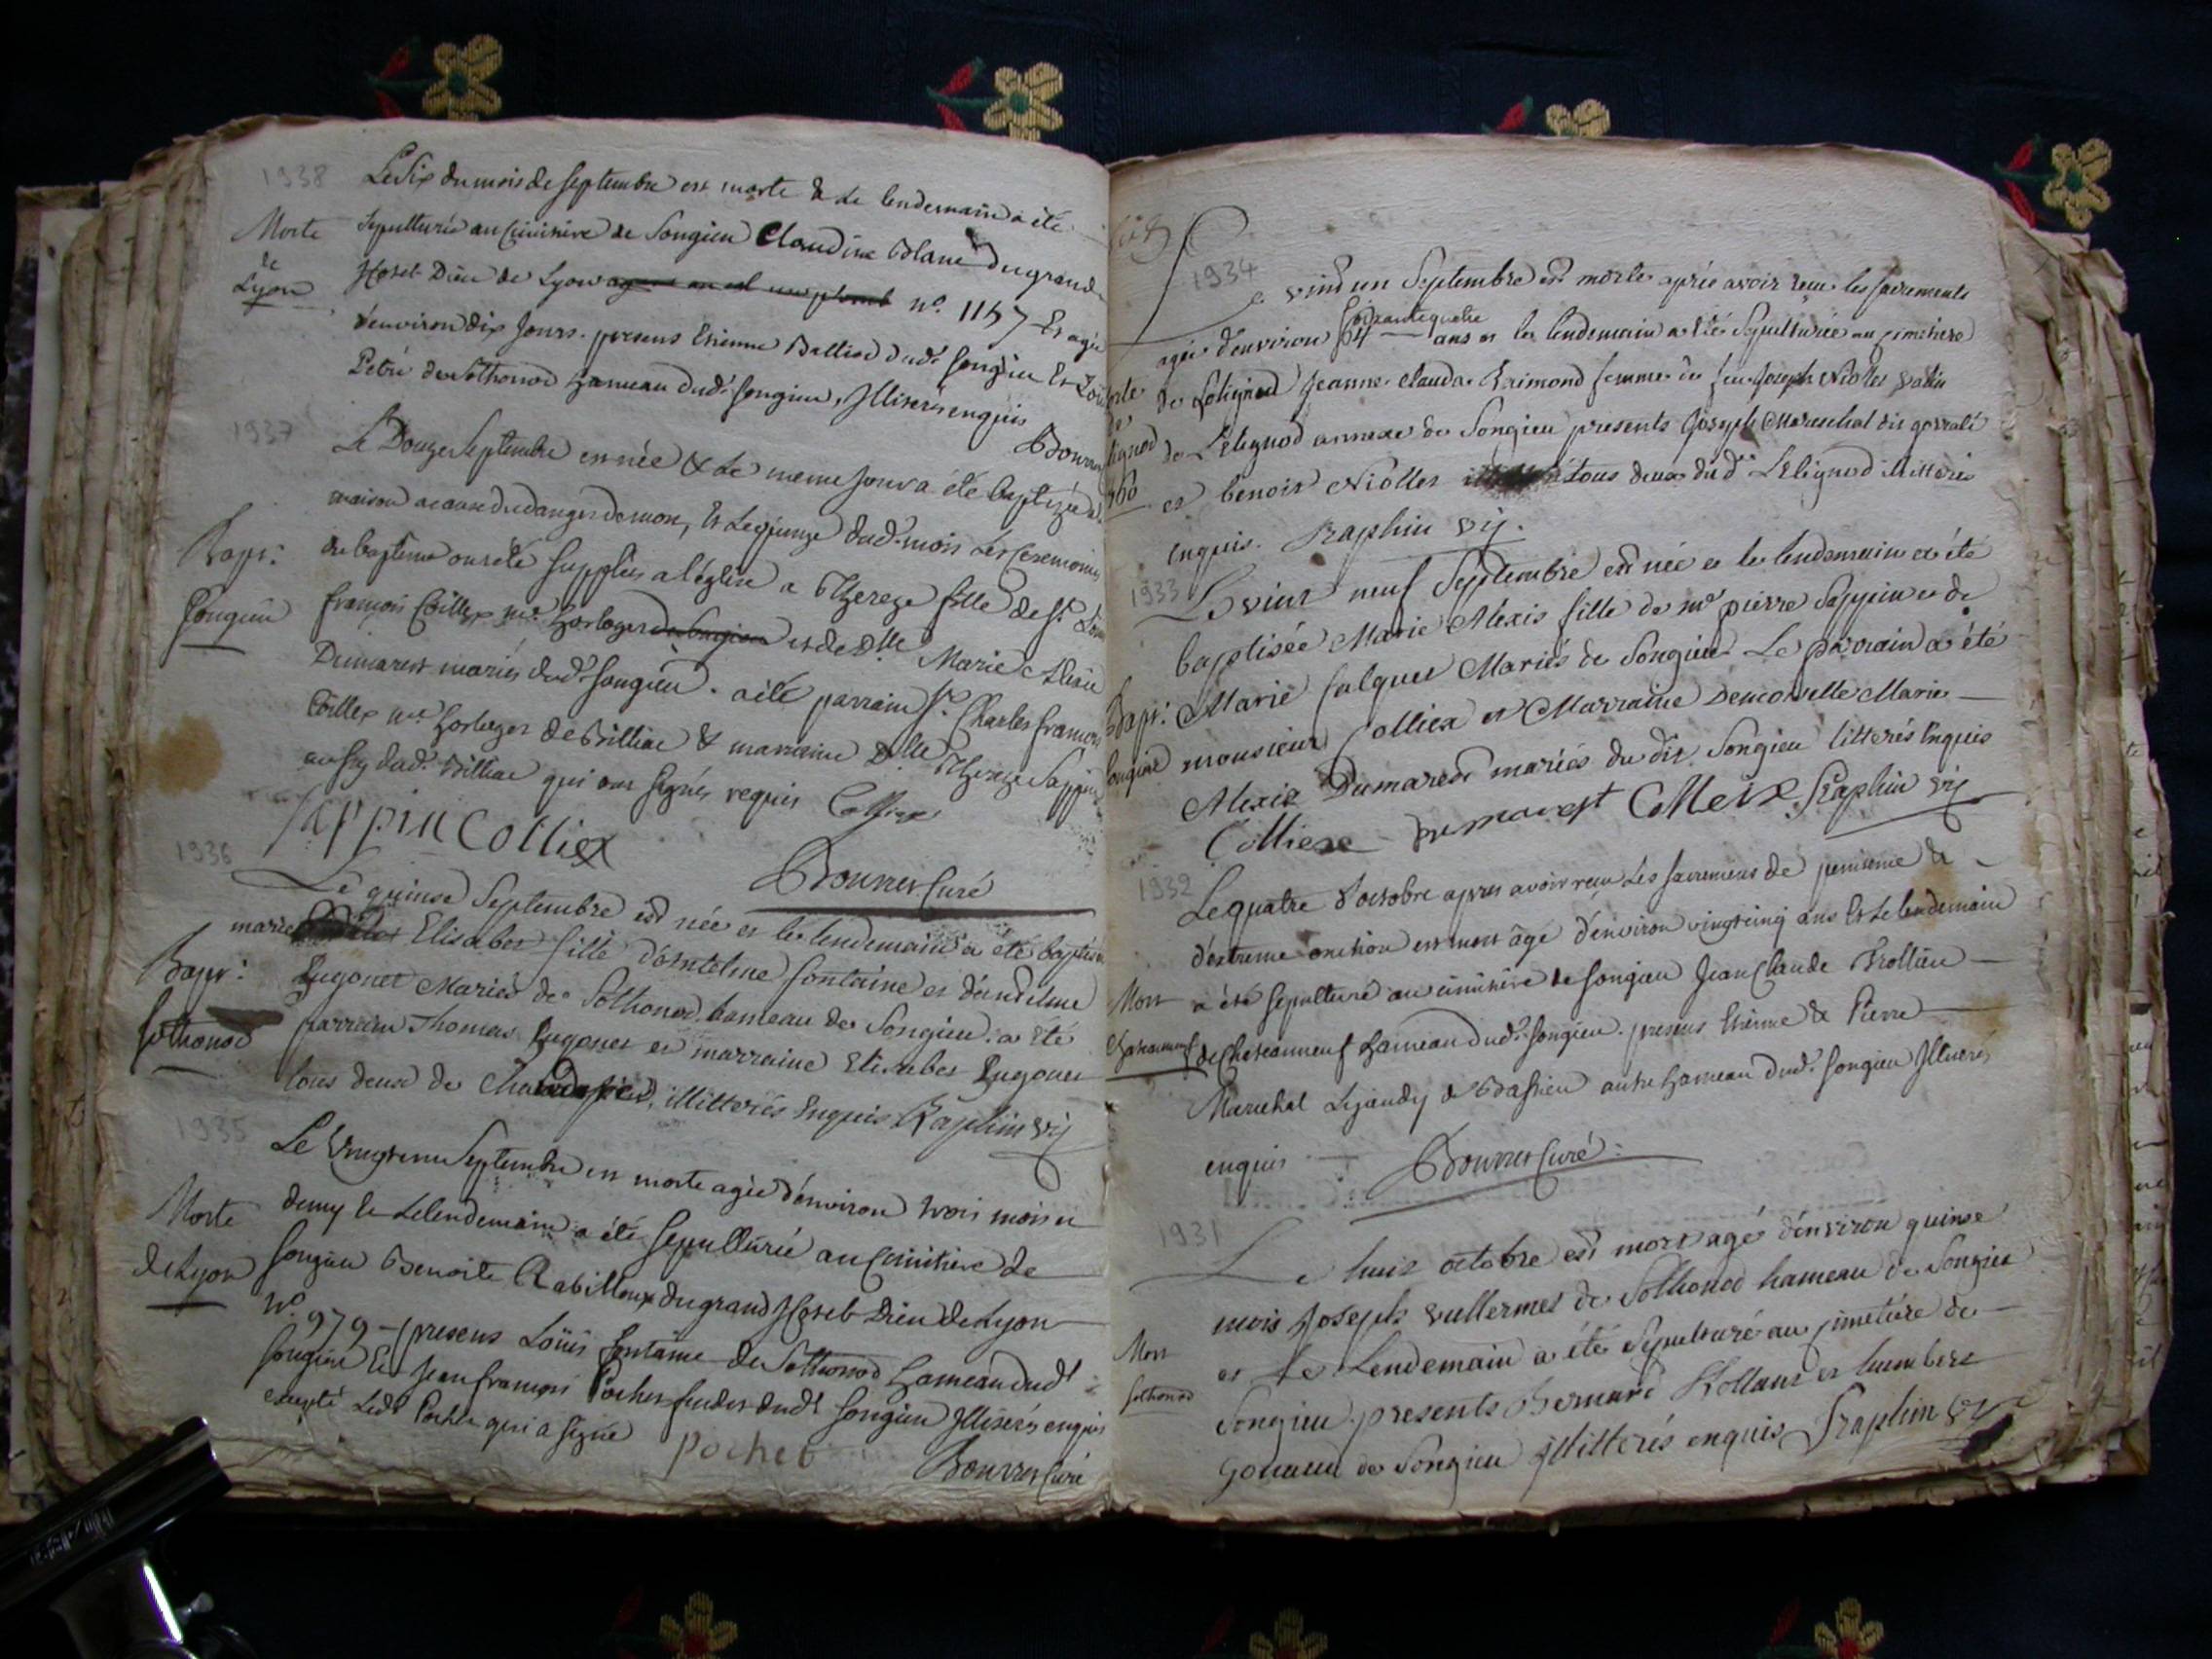 1938
Le Six du mois de septembre est morte & le lendemain a été
Morte
de
Lyon
Sepulturée au Cimitiere de Songieu Claudine Blanc du grand
Hotel Dieu de Lyon n.º 1157 Et agée
d'environ dix Jours. presens Etienne Ballied dud.t Songieu Et
Petri de Sothonod hameau dud.t songieu, Illiterés enquis
1937
Le Douze Septembre est née & Le meme Jour a été baptizée
maison a cause du danger de mort, Et Le quinze dud.t mois Les Ceremonies
Bapt:
Songieu
du baptême ont été Suppléés a l'église a Thereze fille de S.r
francois Coillex m.e horloger et de D.lle Marie Alexie
Dumarest mariés dud.t Songieu. a été parrain S.r Charles francois
Collex m.e horloger de Billiac & marraine D.lle Thereze Sappin
aussy dud.t Billiac qui ont signés requis Colliex
Sappin Colliex
Bouvret Curé
1936
Le quinse Septembre est née et le lendemain a été baptisée
marie Elisabet fille d'Antelme fontaine et d'andelme
Bapt:
Sothonod
Pugonet Mariés de Sothonod hameau de Songieu. a été
parrain Thomas Pugonet et marraine Elisabet Pugonet
tous deux de illitterés Enquis Raphin vic
1935
Le Vingt un Septembre est morte agée d'environ trois mois et
Morte
de Lyon
demy & Le lendemain a été Sepulturée au Cimitiere de
Songieu Benoite Rabilloux du grand Hotel Dieu de Lyon
N.º 979 - presens Loüis fontaine de Sothonod hameau dud.t
Songieu Et Jean francois Pochet dud.t Songieu Illiterés enquis
excepté Led.t Pochet qui a signé
Pochet
Bouvret Curé
1934
Le vint un Septembre est morte après avoir reçu les sacrements
soixante quatre
agée d'environ 64 ans et le lendemain a été Sepulturée au cimitiere
de Lelignod Jeanne Clauda Raimond femme de feu Joseph Niollet
de Lelignod annexe de Songieu presents Joseph Mareschal dit
et benoit Niollet tous deux dud.t Lelignod illitterés
enquis. Raphin vic.
1933
Le vint neuf Septembre est née et le lendemain a été
baptisée Marie Alexis fille de m.e pierre Sappin et de
Bapt:
Songieu
Marie falquet Mariés de Songieu Le parrain a été
monsieur Colliex et Marraine Demoiselle Marie
Alexis Dumarest mariés du dit Songieu litterés Enquis
Colliex Dumarest Colleix Raphin vic
1932
Le quatre d'octobre apres avoir reçu Les sacremens de penitence &
d'extreme onction est mort agé d'environ vingt cinq ans Et Le lendemain
Mort
Chateauneuf
a été Sepulturé au cimitiere de songieu Jean Claude Trollieu
de Chateauneuf hameau dud.t songieu. presens Etienne & Pierre
Marechal de Bassieu autre hameau dud.t songieu Illiterés
enquis
Bouvret Curé:
1931
Le huit octobre est mort agé d'environ quinse
mois Joseph Vuillermet de Sothonod hameau de Songieu
Mort
Sothonod
et le Lendemain a été Sepulturé au cimetiere de
Songieu presents Bernard Rolland et humbert
de Songieu illitterés enquis Raphin vic